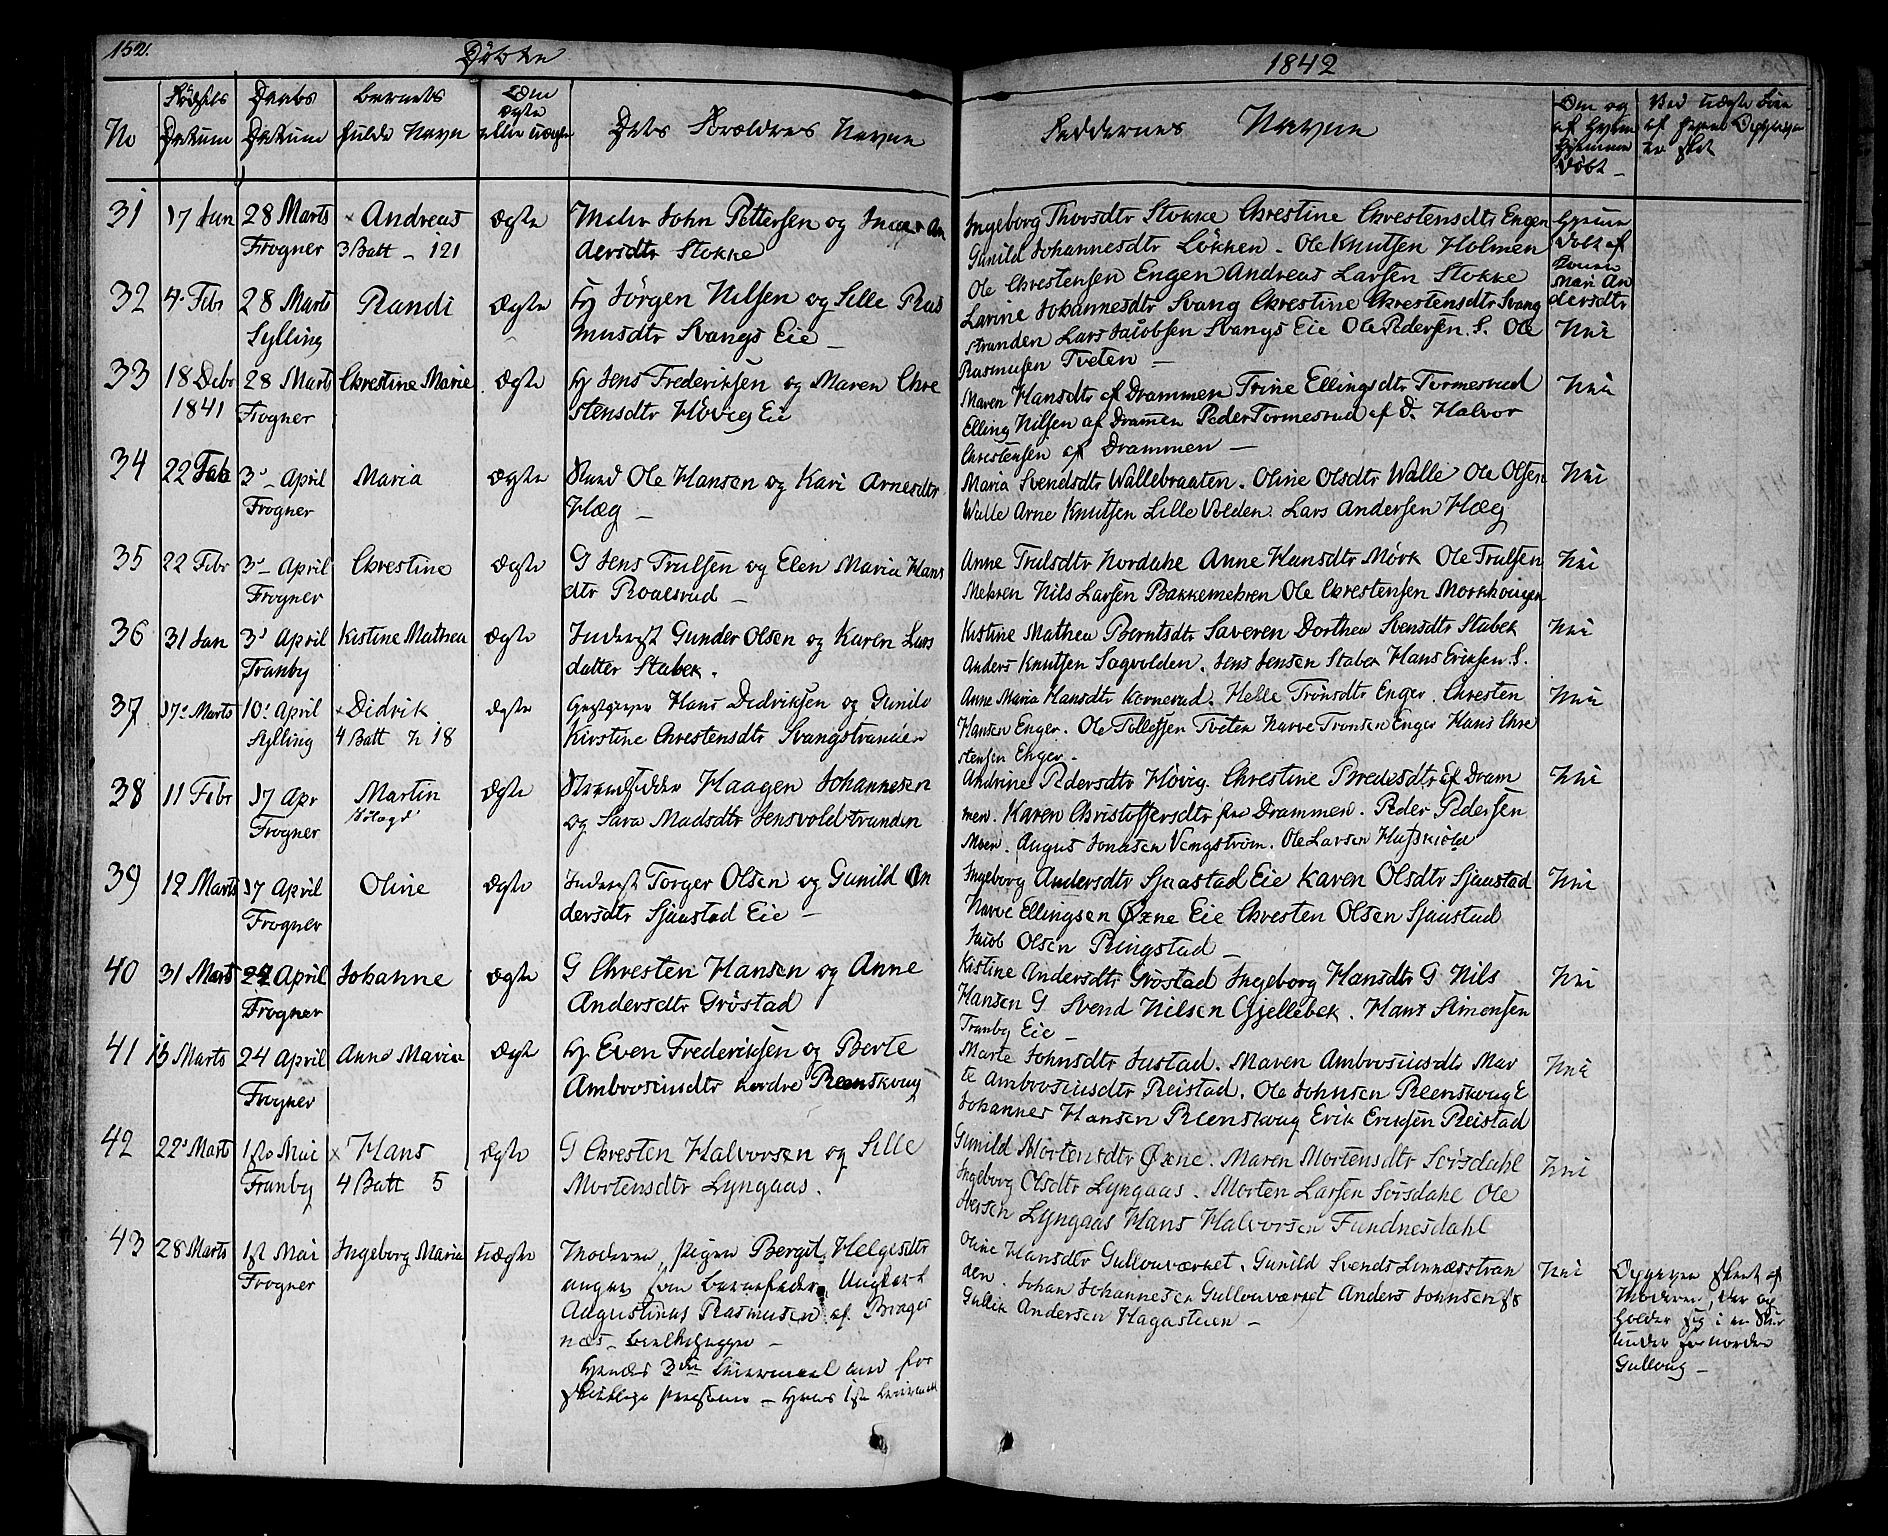 152.
Döbte
1842
No
Fødsels Datum
Daabs Datum
Barnets fulde Navn
Om ægte eller uægte
Dets Forældres Navne
Faddernes Navne
Om og af hvem hjemmedöbt
31 17 Jan 28 Marts Frogner × Andreas 3 Batt - 121 ægte
John Pettersen og Inger An
dersdtr Stokke
Ingeborg Thorsdtr Stokke Chrestine Chrestensdtr Engen
Gunild Johannesdtr Lökken. Ole Knutsen Holmen
Ole Chrestensen Engen Andreas Larsen Stokke
Mari An
dersdtr
32 4. Febr 28 Marts Sylling Randi ægte
Jörgen Nilsen og Sille Ras
musdtr Svangs Eie
Larine Johannesdtr Svang Chrestine Chrestensdtr Svang
stranden Lars Jacobsen Svangs Eie Ole Pedersen S. Ole
Rasmusen Tveten
Nei
33 18 Debr 1841 28 Marts Frogner Chrestine Marie ægte
Jens Frederiksen og Maren Chre
stensdtr Hövig Eie
Maren Hansdtr af Drammen Trine Ellingsdtr Tormesrud
Elling Nilsen af Dramen Peder Tormesrud af D. Halvor
Christensen af Drammen
Nei
34 22 Feb 3 April Frogner Maria ægte
Ole Hansen og Kari Arnesdtr
Hæg
Maria Svendsdtr Wallebraaten. Oline Olsdtr Walle Ole Olsen
Walle Arne Knutsen Lille Volden. Lars Andersen Hæg
Nei
35 22 Febr 3 April Frogner Chrestine ægte
G Jens Trulsen og Elen Maria Hans
dtr Roalsrud
Anne Trulsdtr Nordahe Anne Hansdtr Mörk Ole Trulsen
Mehren Nils Larsen Bakkemehren Ole Chrestensen
Nei
36 31 Jan 3 April Tranby Kistine Mathea ægte
Inderst Gunder Olsen og Karen Lars
datter Stabek.
Kistine Mathea Berntsdtr Saveren Dorthea Svensdtr Stabek
Anders Knutsen Sagvolden. Jens Jensen Stabek Hans Eriksen S.
Nei
37 17 Marts 10 April Sylling × Didrik 4 Batt N 18 ægte
Hans Didriksen og Gunild
Kirstine Chrestensdtr Svangstranden
Anne Maria Hansdtr. Helle Tronsdtr Enger. Chresten
Hansen Enger. Ole Tollefsen Tveten Narve Tronsen Enger Hans Chre
stensen Enger.
Nei
38 11 Febr 17 Apr Frogner Martin ægte
Haagen Johannesen
og Sara Madsdtr Jensvoldstranden
Andrine Pedersdtr Hövig. Chrestine Bredesdtr af Dram
men. Karen Christoffersdtr fra Drammen. Peder Pedersen
Moen. August Jonasen Vengström. Ole Larsen
Nei
39 12 Marts 17 April Frogner Oline ægte
Inderst Torger Olsen og Gunild An
dersdtr Sjaastad Eie
Ingeborg Andersdtr Sjaastad Eie Karen Olsdtr Sjaastad
Narve Ellingsen Øxne Eie Chresten Olsen Sjaastad
Jacob Olsen Ringstad
Nei
40 31 Marts 24 April Frogner Johanne ægte
G Chresten Hansen og Anne
Andersdtr Gröstad
Kistine Andersdtr Gröstad Ingeborg Hansdtr G Nils
Hansen G Svend Nilsen Gjellebek. Hans Simonsen
Tranby Eie
Nei
41 13 Marts 24 April Frogner Anne Maria ægte
Even Frederiksen og Berte
Ambrosiusdtr nordre Reenskoug
Marte Johnsdtr Justad. Maren Ambrosiusdtr Mar
te Ambrosiusdtr Reistad. Ole Johnsen Reenskoug E
Johannes Hansen Reenskoug Erik Eriksen Reistad
Nei
42 22 Mart 1ste Mai Tranby × Hans 4 Batt 5 ægte
G Chresten Halvorsen og Sille
Mortensdtr Lyngaas.
Gunild Mortensdtr Øxne. Maren Mortensdtr Sørsdahl
Ingeborg Olsdtr Lyngaas. Morten Larsen Sørsdahl Ole
Iversen Lyngaas Hans Halvorsen Fundnesdahl
Nei
43 28 Marts 1st Mai Frogner Ingeborg Maria uægte
Moderen pigen Bergit Helgesdtr
angav som Barnefader Ungkarl
Augustinus Rasmusen af Brager
næs
Oline Hansdtr Gullouværket. Gunild Svends Linnæsstran
den. Johan Johannesen Gullouværket Anders Johnsen
Gullik Andersen Hagasteien
Nei
Moderen, der og
holder sig i en Stue
under for norden
Gulloug